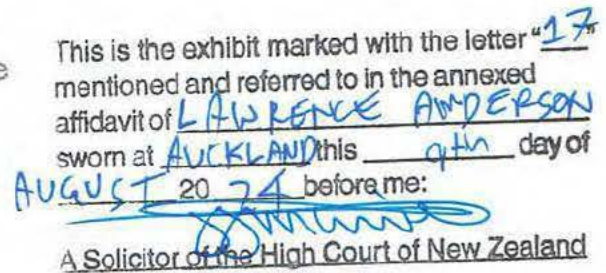 This is the exhibit marked with the letter "17"
mentioned and referred to in the annexed
affidavit of LAWRENCE ANDERSON
sworn at AUCKLAND this 9th day of
AUGUST 20 24 before me:
A Solicitor of the High Court of New Zealand